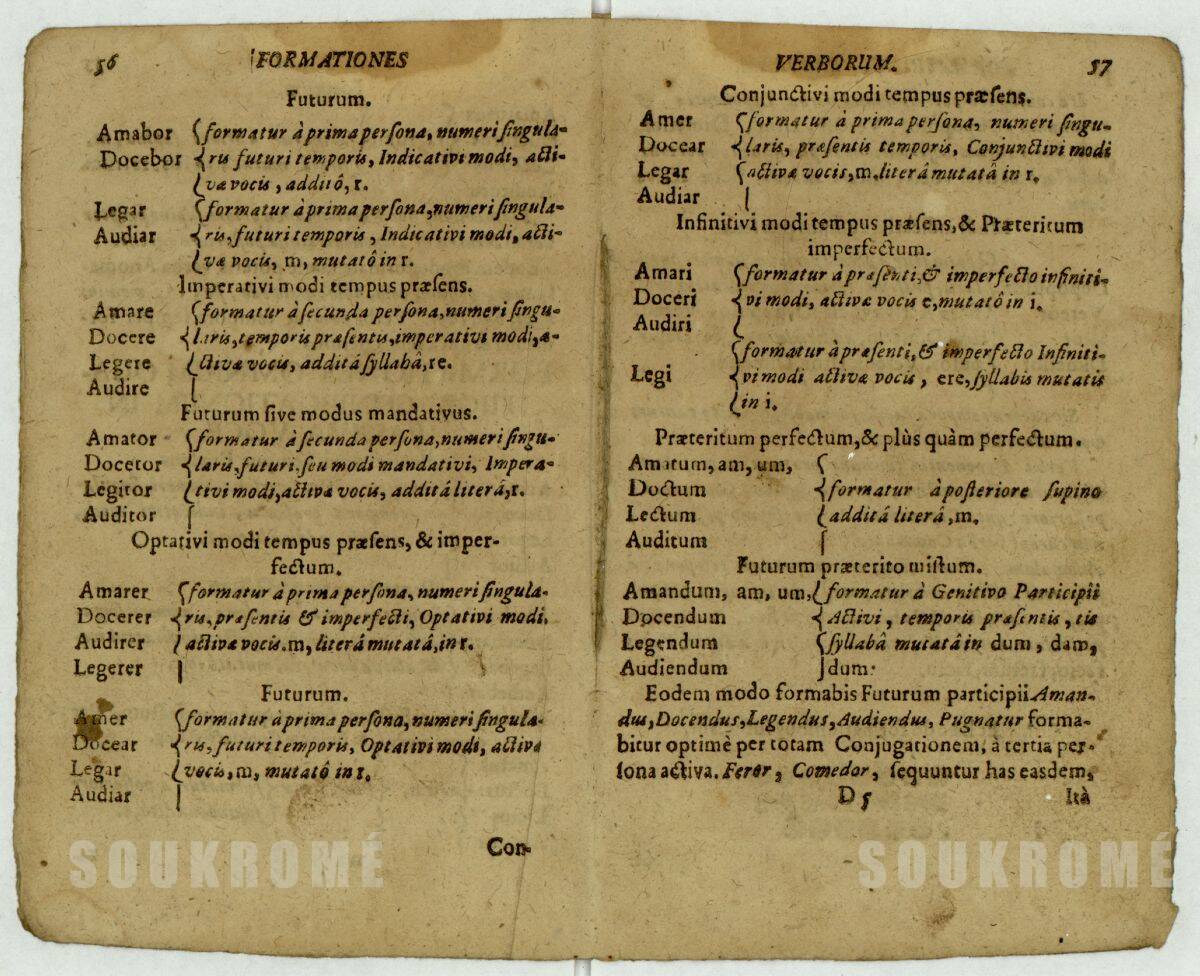 56 FORMATIONES
Futurum.
Amabor formatur à prima perſona, numeri ſingula-
Docebor ris futuri temporis, Indicativi modi, acti-
væ vocis, additô, r.
Legar formatur à prima perſona, numeri ſingula-
Audiar ris, futuri temporis, Indicativi modi, acti-
væ vocis, m, mutatô in r.
Imperativi modi tempus præſens.
Amare formatur à ſecunda perſona, numeri ſingu-
Docere laris, temporis præſentis, imperativi modi, a-
Legere ctivæ vocis, additâ ſyllabâ, re.
Audire
Futurum ſive modus mandativus.
Amator formatur à ſecunda perſona, numeri ſingu-
Docetor laris, futuri, ſeu modi mandativi, Impera-
Legitor tivi modi, activæ vocis, additâ literâ, r.
Auditor
Optativi modi tempus præſens, & imper-
fectum.
Amarer formatur à prima perſona, numeri ſingula-
Docerer ris, præſentis & imperfecti, Optativi modi,
Audirer activæ vocis. m, literâ mutatâ, in r.
Legerer
Futurum.
Amer formatur à prima perſona, numeri ſingula-
Docear ris, futuri temporis, Optativi modi, activæ
Legar vocis, m, mutatô in r.
Audiar
Con-
SOUKROMÉ
VERBORUM. 57
Conjunctivi modi tempus præſens.
Amer formatur à prima perſona, numeri ſingu-
Docear laris, præſentis temporis, Conjunctivi modi
Legar activæ vocis, m. literâ mutatâ in r.
Audiar
Infinitivi modi tempus præſens, & Præteritum
imperfectum.
Amari formatur à præſenti, & imperfecto infiniti-
Doceri vi modi, activæ vocis e, mutatô in i.
Audiri
formatur à præſenti, & imperfecto Infiniti-
Legi vi modi activæ vocis, ere, ſyllabis mutatis
in i.
Præteritum perfectum, & plùs quàm perfectum.
Amatum, am, um,
Doctum formatur à poſteriore ſupino
Lectum additâ literâ, m.
Auditum
Futurum præterito miſtum.
Amandum, am, um, formatur à Genitivo Participii
Docendum Activi, temporis præſentis, tis
Legendum ſyllabâ mutatâ in dum, dam,
Audiendum dum.
Eodem modo formabis Futurum participii Aman-
dus, Docendus, Legendus, Audiendus, Pugnatur forma-
bitur optimè per totam Conjugationem, à tertia per-
ſona activa. Feror, Comedor, ſequuntur has easdem,
D 5 Ità
SOUKROMÉ